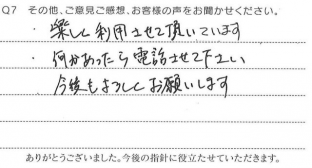 Q7 その他、ご意見ご感想、お客様の声をお聞かせください。
・楽しく利用させて頂いています
・何かあったら電話させて下さい
今後もよろしくお願いします
ありがとうございました。今後の指針に役立たせていただきます。